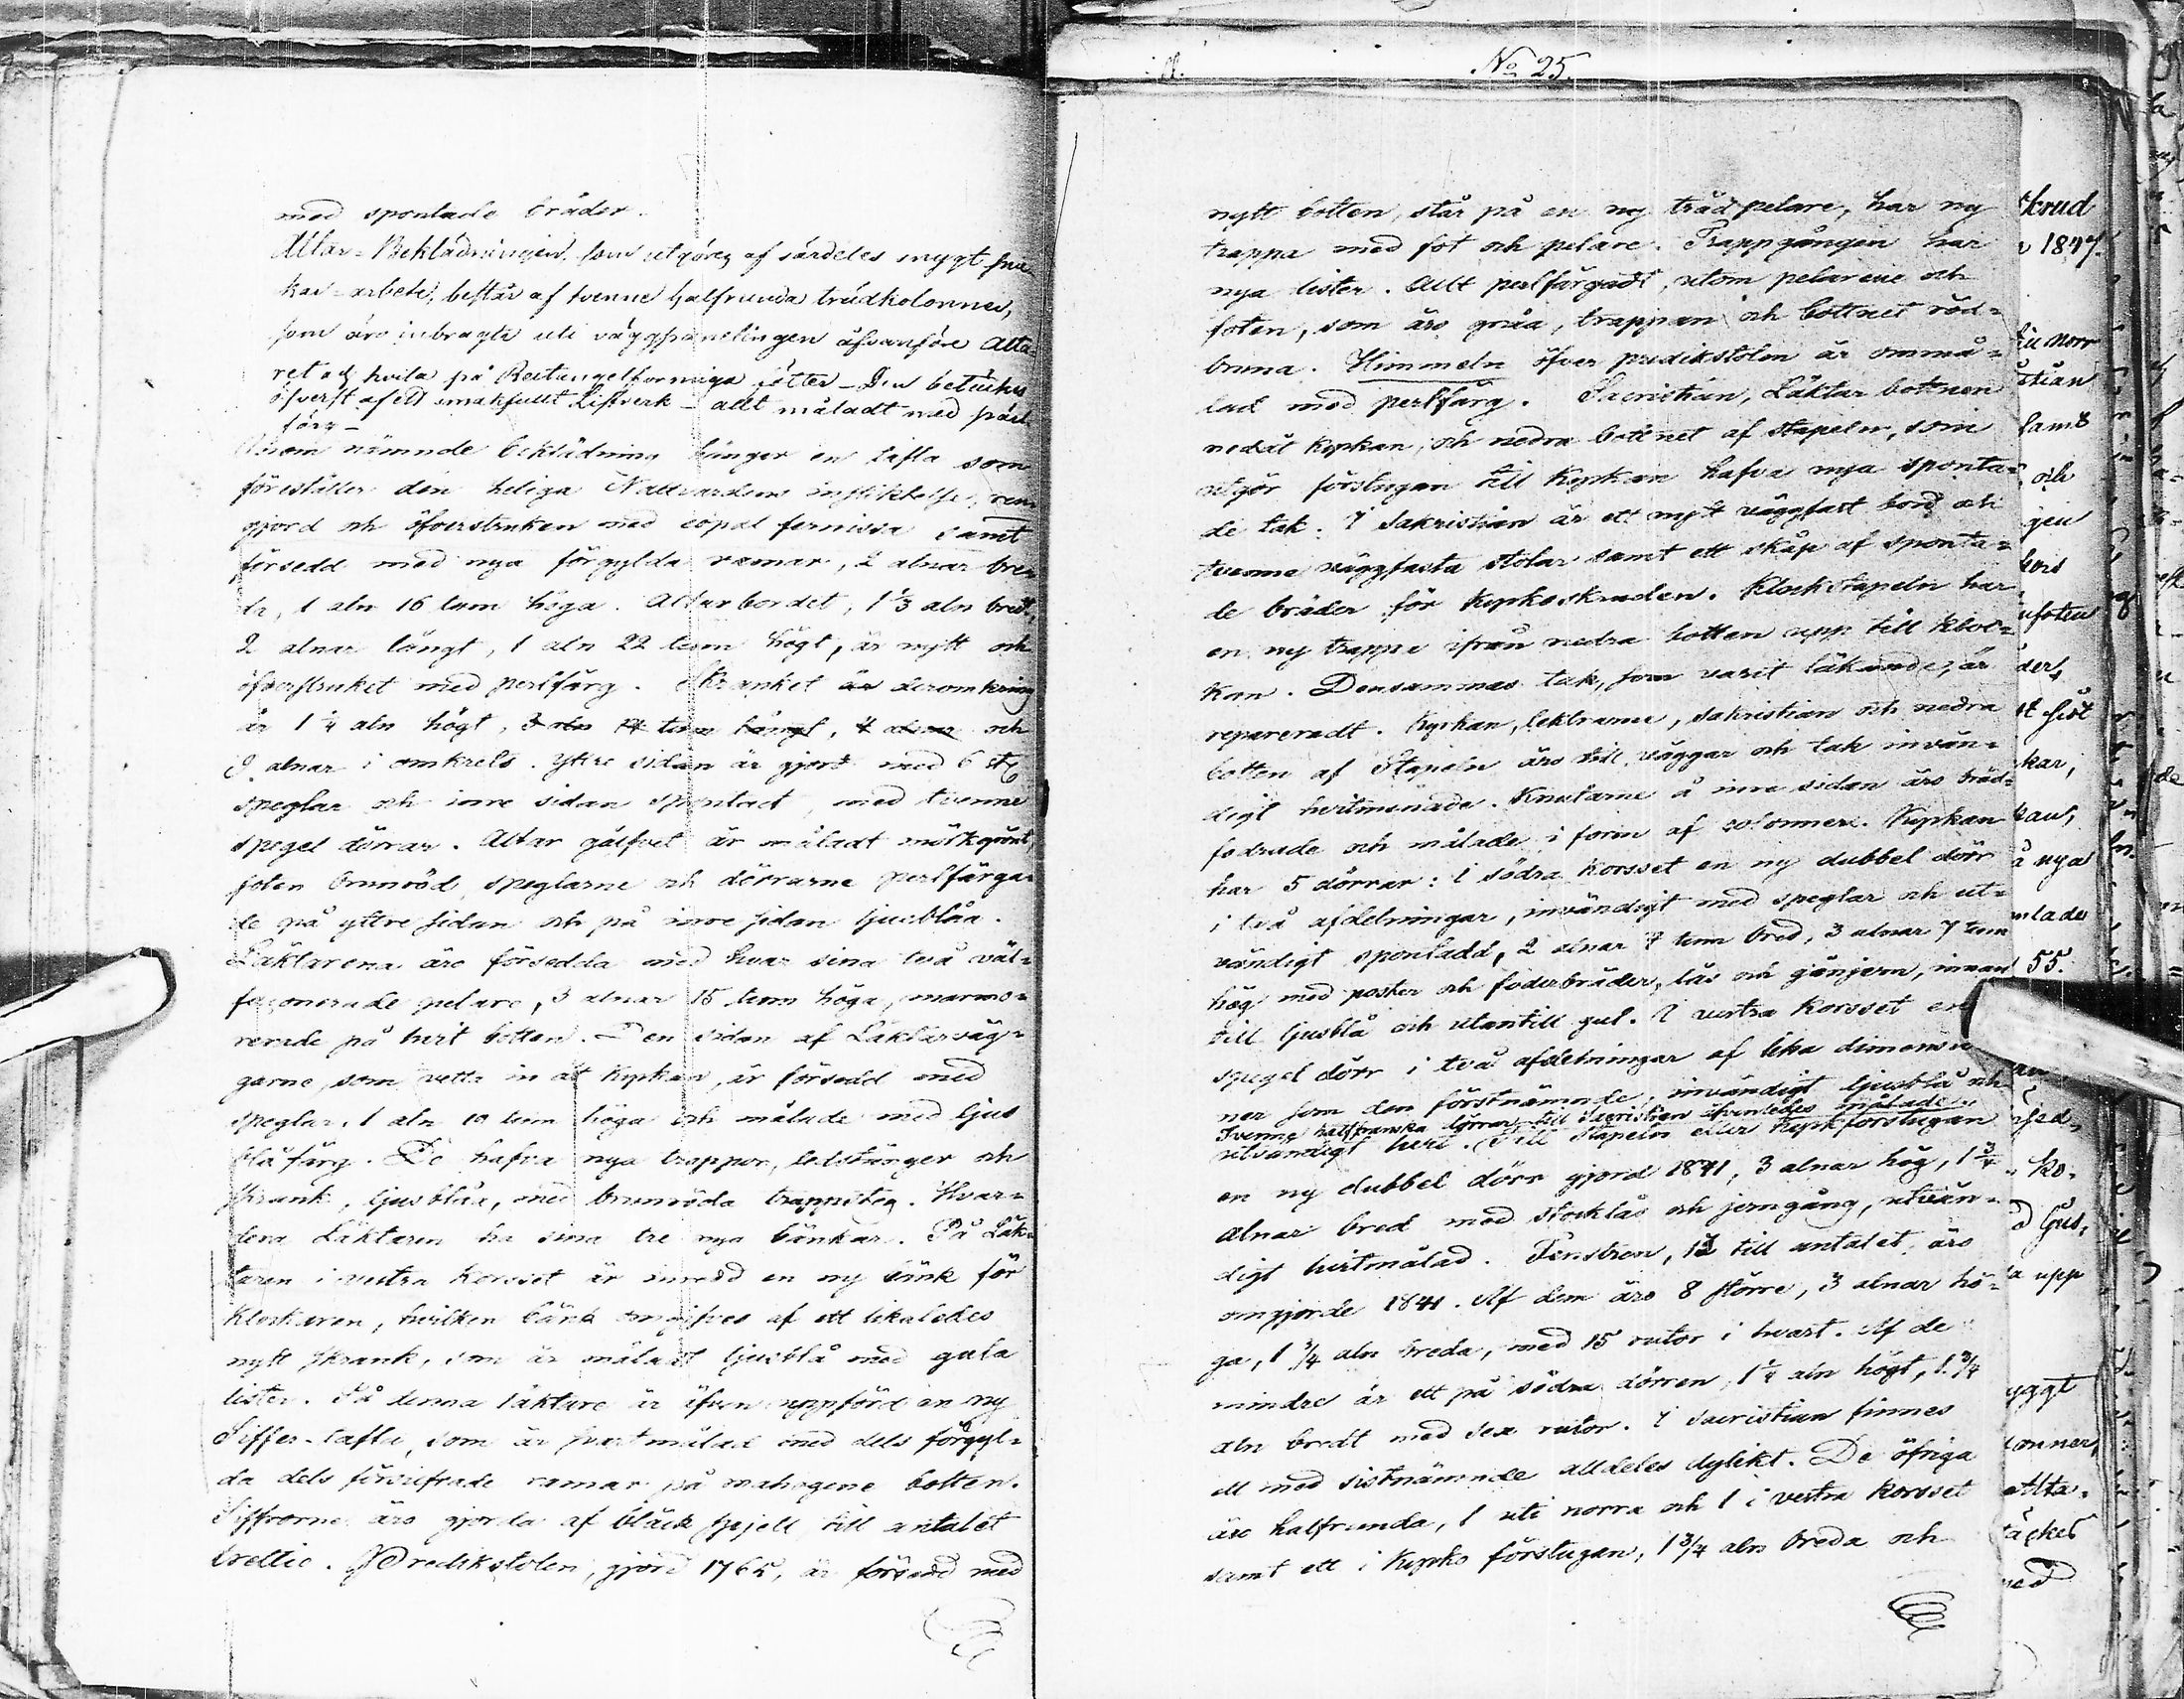 med spontade bräder.
Altar-Beklädningen, som utgöres af särdeles snygt snic-
kar-arbete, består af tvenne halfrunda trädkolonner,
som äro inbragte uti väggpanelingen ofvanföre Alta
ret och hvila på Rectangelformiga fötter - Den betäckes
öfverst af ett smakfullt Listverk - allt måladt med pärl
färg -
nämnde beklädning hänger en tafla som
föreställer den heliga Nattvardens instiktelse, ren
gjord och öfverstruken med copal fernissa samt
försedd med nya förgylda ramar, 2 alnar bre
da, 1 aln 16 tum höga. Altarbordet, 1 1/3 aln bredt,
2 alnar långt, 1 aln 22 tum högt, är nytt och
öfverstruket med perlfärg. Skranket är deromkring
är 1 1/4 aln högt, 3 aln 14 tum långt, 4 alnar och
9 alnar i omkrets. Yttre sidan är gjord med 6 st
speglar och inre sidan spontad, med tvenne
spegel dörrar. Altar gålfvet är måladt mörkgrönt
foten brunröd, speglarne och dörrarne perlfärga-
de på yttre sidan och på inre sidan ljusblåa.
Läktarena äro försedda med hvar sina två väl-
façonerade pelare, 3 alnar 15 tum höga, marmo-
rerade på hvit botten. Den sidan af Läktarväg-
garne, som vetta in åt Kyrkan, är försedd med
speglar, 1 aln 10 tum höga och målade med ljus
blå färg. De hafva nya trappor, ledstänger och
skrank, ljusblåa, med brunröda trappsteg. Hvar-
dera Läktaren ha sina tre nya bänkar. På Läk-
taren i vestra Korsset är inredd en ny bänk för
Klockaren, hvilken bänk omgifves af ett likaledes
nytt skrank, som är måladt ljusblå med gula
lister. På denna läktare är äfven uppförd en ny
Siffer-tafla, som är svartmålad med dels förgyl-
da dels försilfrade ramar på mahogene botten.
Siffrorne äro gjorda af bläck till antalet
trettio. Predikstolen, gjord 1765, är försedd med
No 25.
nytt botten, står på en ny träd pelare, har ny
trappa med fot och pelare. Trappgången har
nya lister. Allt perlfärgadt, utom pelarene och
foten, som äro gråa, trappan och bottnet röd-
bruna. Himmeln öfver predikstolen är ommå-
lad med perlfärg. Sacristian, Läktar bottnen
nedåt Kyrkan, och nedra bottnet af stapeln, som
utgör förstugan till Kyrkan hafva nya sponta-
de tak. I Sakristian är ett nytt väggfast bord och
tvenne väggfasta stolar samt ett skåp af sponta-
de bräder för Kyrkoskruden. Klockstapeln har
en ny trappa ifrån nedra botten upp till kloc-
kan. Densammas tak, som varit läkande, är
repareradt. Kyrkan, läktrarne, sakristian och nedra
botten af Stapeln äro till väggar och tak invän-
digt hvitmenade. Knutarne å inre sidan äro bräd-
fodrade och målade i form af colonner. Kyrkan
har 5 dörrar: i södra Korsset en ny dubbel dörr
i två afdelningar, invändigt med speglar och ut-
vändigt spontadd, 2 alnar 7 tum bred, 3 alnar 7 tum
hög med poster och foderbräder, lås och gånjern, innan
till ljusblå och utantill gul. I vestra Korsset en
spegel dörr i två afdelningar af lika dimensio
ner som den förstnämnde, invändigt ljusblå och
Tvenne halffranska dörrar till Sacristian äfvenledes målade.
utvändigt hvit. Till Stapeln eller Kyrkförstugan
en ny dubbel dörr gjord 1841, 3 alnar hög, 1 3/4
alnar bred med stocklås och jerngång, utvän-
digt hvitmålad. Fenstren, 12 till antalet, äro
omgjorde 1841. Af dem äro 8 större, 3 alnar hö-
ga, 1 3/4 aln breda, med 15 rutor i hvart. Af de
mindre är ett på södra dörren, 1 1/4 aln högt, 1 3/4
aln bredt med sex rutor. I sacristian finnes
ett med sistnämnde alldeles dylikt. De öfriga
äro halfrunda, 1 uti norra och 1 i vestra Korsset
samt ett i Kyrko förstugan, 1 3/4 aln breda och